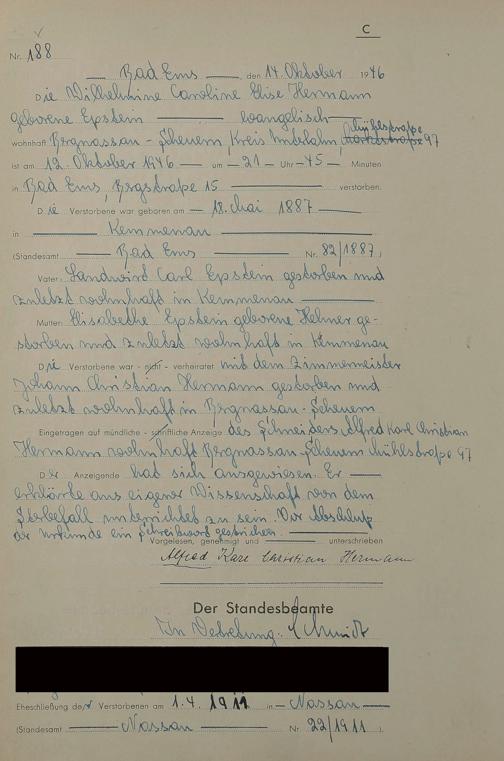 C
Nr. 188
Bad Ems, den 14. Oktober 1946
Die Wilhelmine Caroline Elise Hermann
geborene Epstein evangelisch
Mühlstraße
wohnhaft Bergnassau-Scheuern, Kreis Unterlahn, 97
ist am 12. Oktober 1946 um 21 Uhr 45 Minuten
in Bad Ems, Bergstraße 15 verstorben.
Die Verstorbene war geboren am 18. Mai 1887
in Kemmenau
(Standesamt Bad Ems Nr. 82/1887)
Vater: Landwirt Carl Epstein gestorben und
zuletzt wohnhaft in Kemmenau
Mutter: Elisabethe Epstein geborene Hehner ge-
storben und zuletzt wohnhaft in Kemmenau
Die Verstorbene war - nicht - verheiratet mit dem Zimmermeister
Johann Christian Hermann gestorben und
zuletzt wohnhaft in Bergnassau-Scheuern
Eingetragen auf mündliche - schriftliche Anzeige des Schneiders Alfred Karl Christian
Hermann wohnhaft Bergnassau-Scheuern Mühlstraße 97
Der Anzeigende hat sich ausgewiesen. Er
erklärte aus eigener Wissenschaft von dem
Sterbefall unterrichtet zu sein. Vor Abschluß
der Urkunde ein Schreibwort gestrichen.
Vorgelesen, genehmigt und unterschrieben
Alfred Karl Christian Hermann
Der Standesbeamte
In Vertretung: Schmidt
Eheschließung der Verstorbenen am 1.4.1911 in Nassau
(Standesamt Nassau Nr 22/1911).